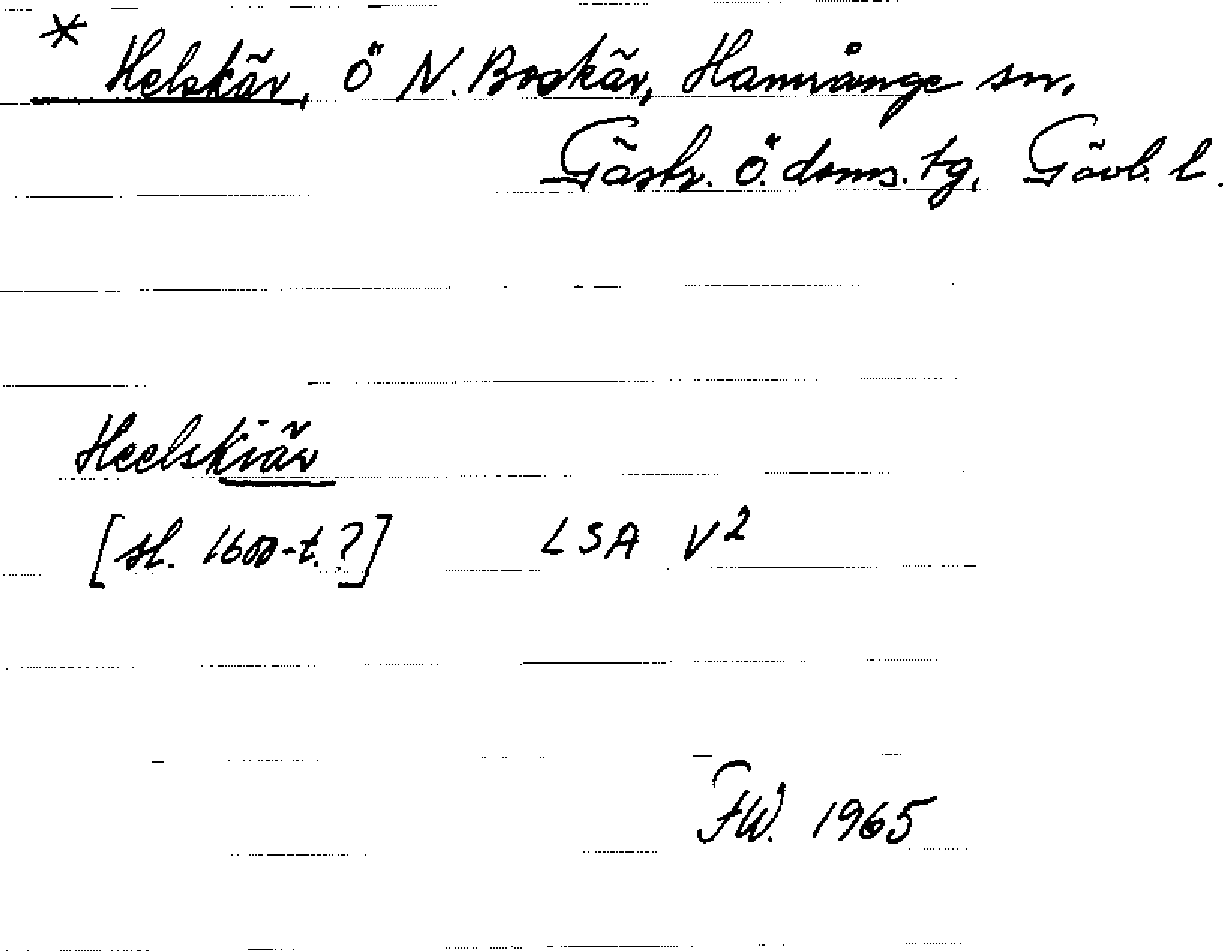 * Helskär, ö N. Boskär, Hamrånge sn,
Gästr. ö. doms. tg, Gävl. l.
Heelskiär
[sl. 1600-t.?] LSA V2
FW. 1965